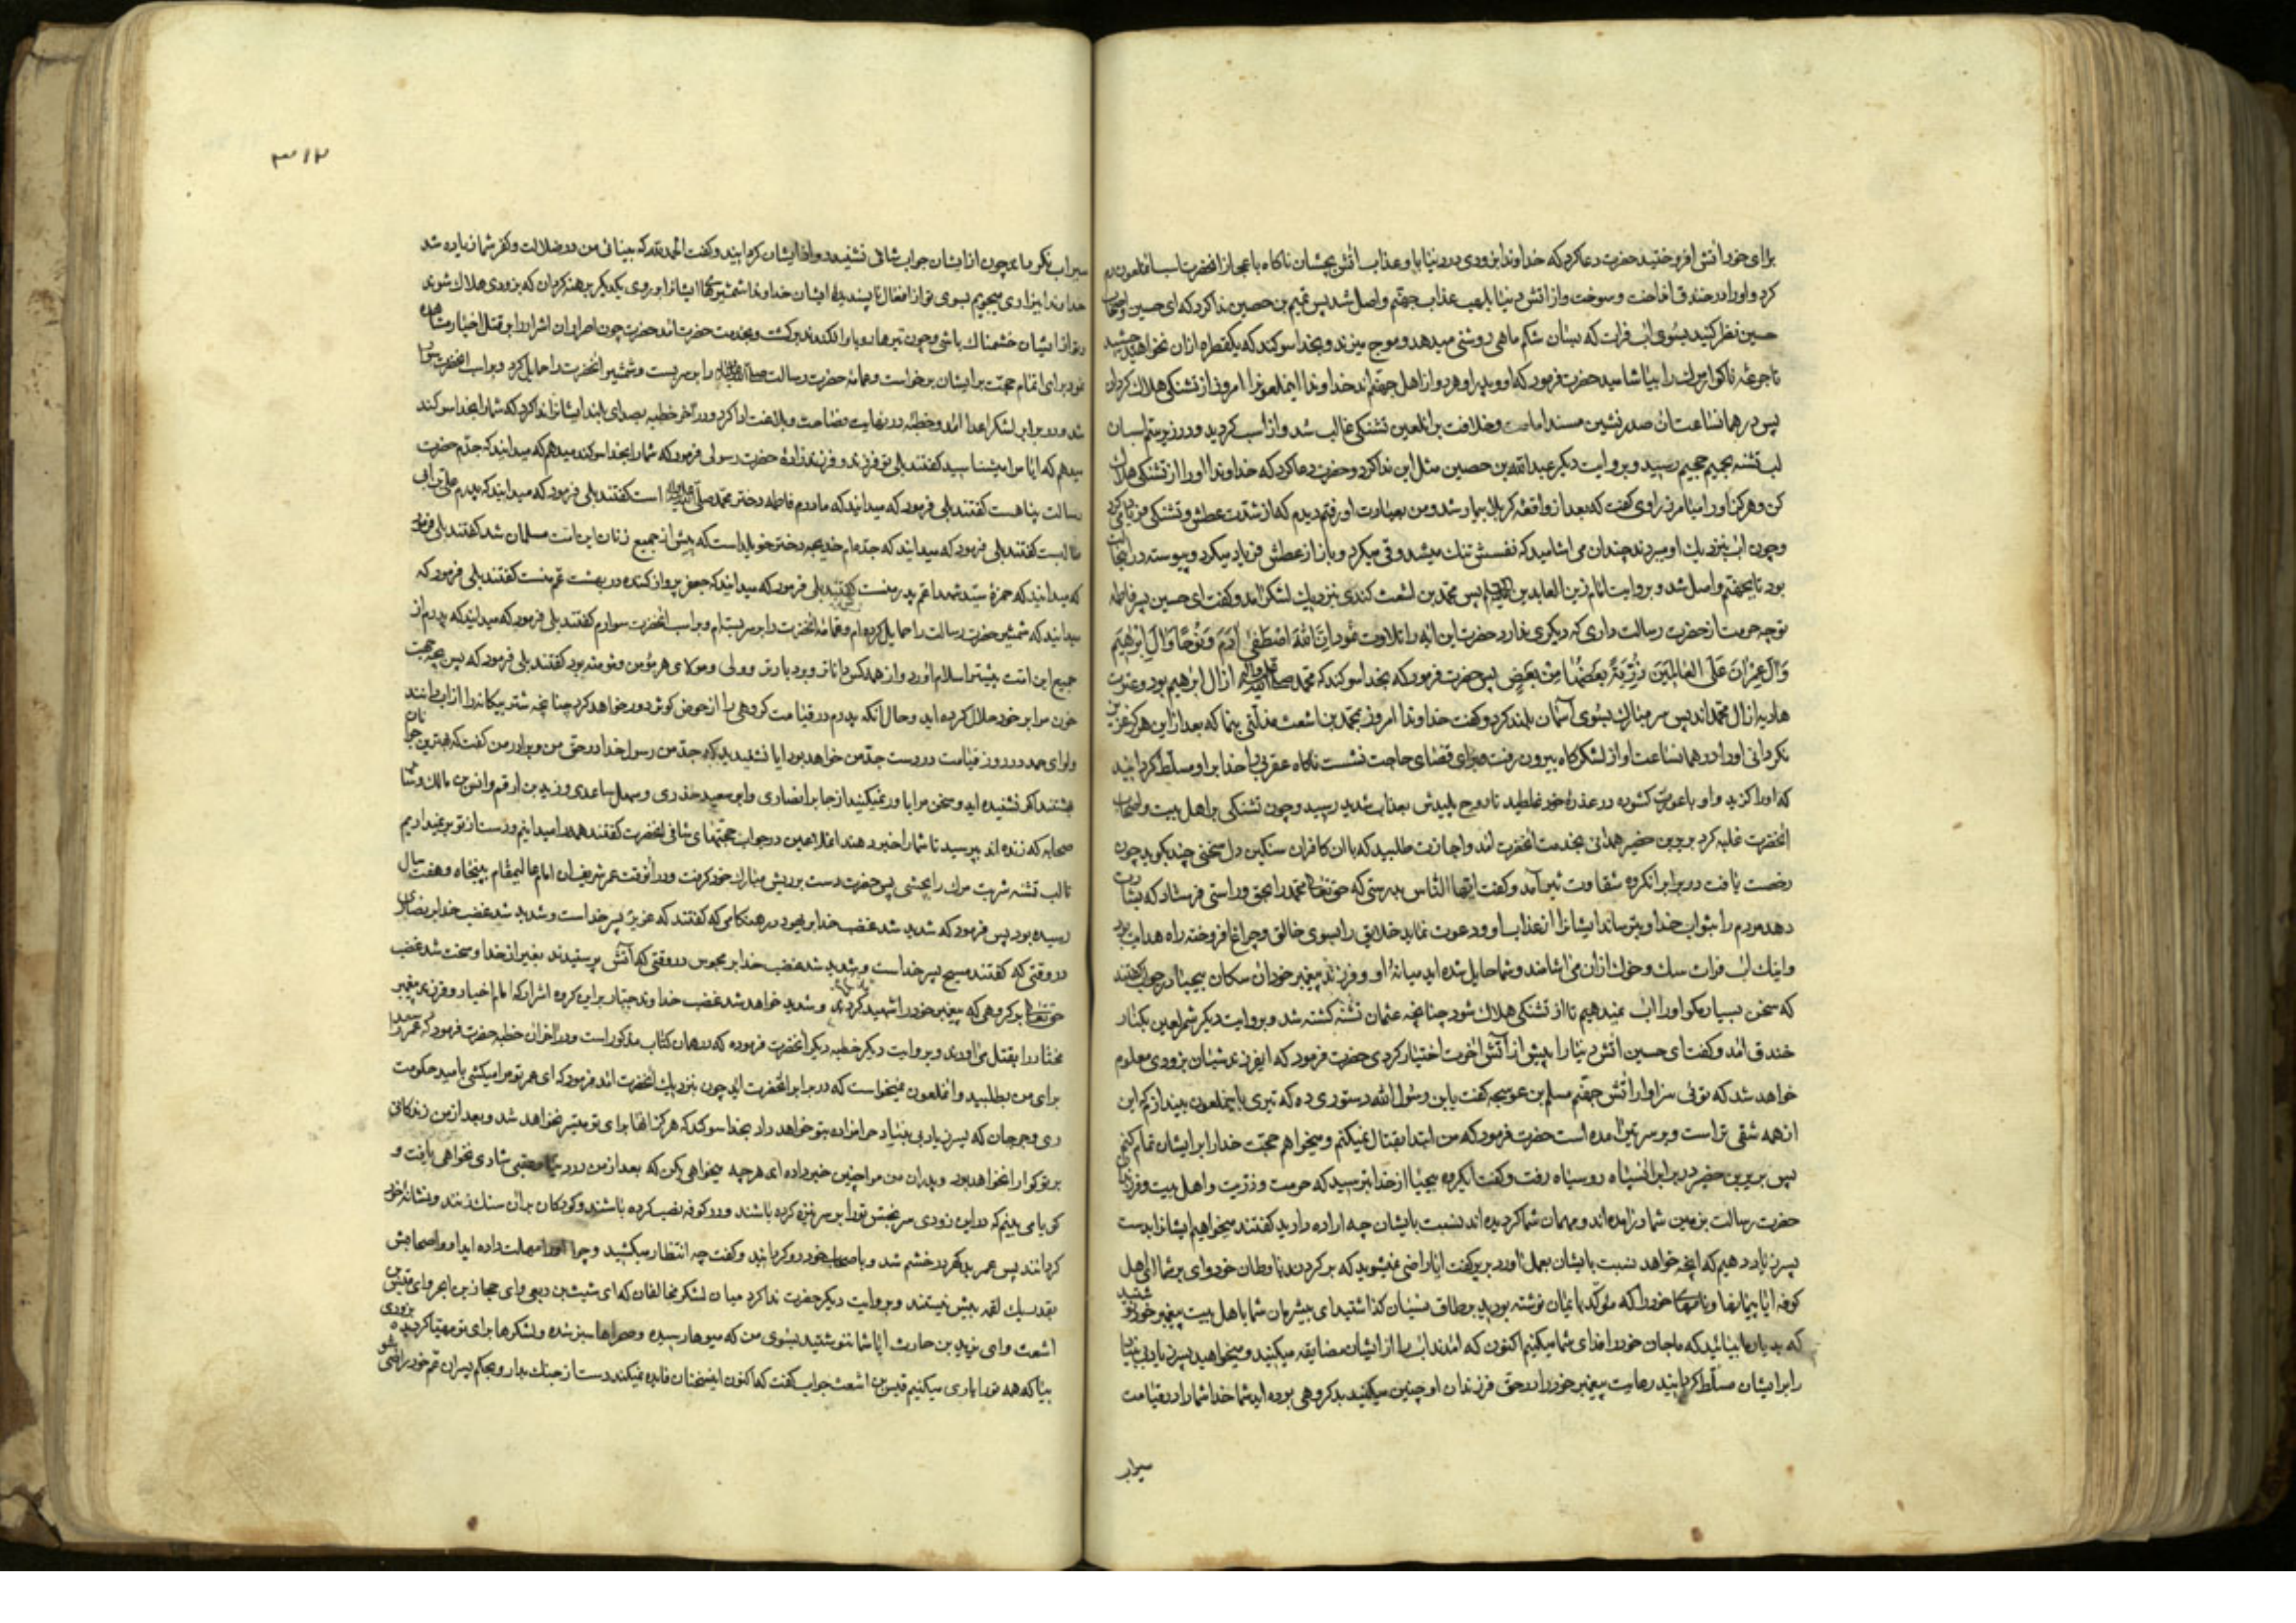 برای خود آتش افروختید حضرت دعا کرد که خداوندا بزودی در دنیا باو عذاب آتش بچشان ناکاه باعجاز آنحضرت اسب آنملعون رم
کرد و او را در خندق انداخت و سوخت و از آتش دنیا بلهب عذاب جهنم واصل شد پس تمیم بن حصین ندا کرد که ای حسین و اصحاب
حسین نظر کنید بسوی آب فرات که بسان شکم ماهی روشنی میدهد و موج میزند و بخدا سوکند که یکقطره ازان نخواهید چشید
تا جرعهٔ ناکوار مرک را بیاشامید حضرت فرمود که او و پدر او هر دو از اهل جهنم‌اند خداوندا اینملعونرا امروز از تشنکی هلاک کردان
پس در همانساعت آن صدرنشین مسند امامت و خلافت بر آنلعین تشنکی غالب شد و از اسب کردید و در زیر سم اسبان
لب تشنه بجحیم رسید و بروایت دیکر عبدالله بن حصین مثل این ندا کرد و حضرت دعا کرد که خداوندا او را از تشنکی هلاک
کن و هرکز او را میامرز راوی کفت که بعد از واقعهٔ کربلا بیمار شد و من بعیادت او رفتم دیدم که از شدت عطش و تشنکی فریاد میکرد
و چون آب بنزدیک او میبردند چندان می اشامید که نفسش تنک میشد و قی میکرد و باز از عطش فریاد میکرد و پیوسته در اینحال
بود تا بجهنم واصل شد و بروایت امام زین العابدین علیه السلام پس محمد بن اشعث کندی بنزدیک لشکر آمد و کفت ای حسین پسر فاطمه
توچه حرمت از حضرت رسالت داری که دیکری ندارد حضرت این آیه را تلاوت نمود اِنَّ اللهَ اصْطَفی آدَمَ وَنُوحًا وَآلَ اِبرهیمَ
وَآلَ عِمْرانَ عَلَی العالَمینَ ذُرِّیَةً بَعضُها مِنْ بَعضٍ پس حضرت فرمود که بخدا سوکند که محمد صلی الله علیه وآله از آل ابرهیم بود و عترت
هادیه از آل محمدند پس سر مبارک بسوی آسمان بلند کرد و کفت خداوندا امروز بمحمد بن اشعث مذلتی بنما که بعد از این هرکز عزیز
نکردانی او را در همانساعت او از لشکرکاه بیرون رفت و برای قضای حاجت نشست ناکاه عقربی را خدا بر او مسلط کردانید
که او را کزید و او با عورت کشوده در عذرهٔ خود غلطید تا روح پلیدش بعذاب شدید رسید و چون تشنکی بر اهل بیت و اصحاب
آنحضرت غلبه کرد بریر بن خضیر همدانی بخدمت آنحضرت آمد و اجازت طلبید که با آن کافران سنکین دل سخنی چند بکوید چون
رخصت یافت در برابر آنکروه شقاوت اثر آمد و کفت ایها الناس بدرستی که حق تعالی محمد را بحق و راستی فرستاد که بشارت
دهد مردم را بثواب خدا و بترساند ایشانرا از عذاب او و دعوت نماید خلایق را بسوی خالق و چراغ افروخته راه هدایت بود
و اینک آب فرات سک و خوک ازان می اشامند و شما حایل شده اید میانهٔ او و فرزند پیغمبر خود ان سکان بیحیا در جواب کفتند
که سخن بسیار مکو او را آب نمیدهیم تا از تشنکی هلاک شود چنانچه عثمان تشنه کشته شد و بروایت دیکر شمر لعین بکنار
خندق آمد و کفت ای حسین آتش دنیا را پیش از آتش آخرت اختیار کردی حضرت فرمود که ایفرزند شبان بزودی معلوم
خواهد شد که توئی سزاوار آتش جهنم مسلم بن عوسجه کفت یابن رسول الله دستوری ده که تیری باینملعون بیندازم که این
از همه شقی تر است و بر سر تیر آمده است حضرت فرمود که من ابتدا بقتال نمیکنم و میخواهم حجت خدا را بر ایشان تمام کنم
پس بریر بن خضیر در برابر آنسپاه رو سیاه رفت و کفت ایکروه بیحیا از خدا بترسید که حرمت و ذریت و اهل بیت و فرزندان
حضرت رسالت بزمین شما آمده‌اند و مهمان شما کردیده اند نسبت بایشان چه اراده دارید کفتند میخواهیم ایشانرا بدست
پسر زیاد دهیم که آنچه خواهد نسبت بایشان بعمل آورد بریر کفت آیا راضی نمیشوید که بر کردند باوطان خود وای بر شما ای اهل
کوفه آیا پیمانها و نامهای خود را که مؤکد بایمان نوشته بودید بر طاق نسیان کذاشتید ای بیشرمان شما باهل بیت پیغمبر خود نوشتید
که بدیار ما بیائید که ما جان خود را فدای شما میکنیم اکنون که آمدند آب را از ایشان مضایقه میکنید و میخواهید پسر زیاد بی‌بنیاد
را بر ایشان مسلط کردانید رعایت پیغمبر خود را در حق فرزندان او چنین میکنید بد کروهی بوده اید شما خدا شما را در قیامت
سیراب
۳۱۲
سیراب نکرداند چون از ایشان جواب شافی نشنید رو از ایشان کردانید و کفت الحمدلله که بینائی من در ضلالت و کفر شما زیاده شد
خداوندا بیزاری میجویم بسوی تو از افعال ناپسندیدهٔ ایشان خداوندا شمشیرهای ایشانرا بر روی یکدیکر برهنه کردان که بزودی هلاک شوند
و تو از ایشان خشمناک باشی و چون تیرها رو باو افکندند برکشت و بخدمت حضرت آمد حضرت چون اصرار ان اشرار را بر قتل اخیار مشاهده
نمود برای اتمام حجت بر ایشان برخواست و عمامهٔ حضرت رسالت صلی الله علیه وآله را بر سر بست و شمشیر آنحضرت را حمایل کرد و بر اسب آنحضرت سوار
شد و در برابر لشکر اعدا آمد و خطبهٔ در نهایت فصاحت و بلاغت ادا کرد و در آخر خطبه بصدای بلند ایشانرا ندا کرد که شما را بخدا سوکند
میدهم که آیا مرا میشناسید کفتند بلی توئی فرزند و فرزندزادهٔ حضرت رسول فرمود که شما را بخدا سوکند میدهم که میدانید که جدم حضرت
رسالت پناهست کفتند بلی فرمود که میدانید که مادرم فاطمه دختر محمد صلی الله علیه وآله است کفتند بلی فرمود که میدانید که پدرم علی بن ابی
طالبست کفتند بلی فرمود که میدانید که جده‌ام خدیجه دختر خویلد است که پیش از جمیع زنان این امت مسلمان شد کفتند بلی فرمود
که میدانید که حمزهٔ سید شهدا عم پدر منست کفتند بلی فرمود که میدانید که جعفر پرواز کننده در بهشت عم منست کفتند بلی فرمود که
میدانید که شمشیر حضرت رسالت را حمایل کرده‌ام و عمامهٔ آنحضرت را بر سر بسته‌ام و بر اسب آنحضرت سوارم کفتند بلی فرمود که میدانید که پدرم از
جمیع این امت پیشتر اسلام آورد و از همه کس داناتر و بردبارتر و ولی و مولای هر مؤمن و مؤمنه بود کفتند بلی فرمود که پس بچه حجت
خون مرا بر خود حلال کرده اید و حال آنکه پدرم در قیامت کروهی را از حوض کوثر دور خواهد کرد چنانچه شتر بیکانه را از آب رانند
و لوای حمد در روز قیامت در دست جدّ من خواهد بود آیا نشنیدید که جدّ من رسول خدا در حق من و برادر من کفت که بهترین جوانان
بهشتند اکر نشنیده اید و سخن مرا باور نمیکنید از جابر انصاری و ابو سعید خدری و سهل ساعدی و زید بن ارقم و انس بن مالک و سایر
صحابه که زنده اند بپرسید تا شما را خبر دهند انملاعین در جواب حجتهای شافی آنحضرت کفتند همه را میدانیم و دست از تو بر نمیداریم
تا لب تشنه شربت مرک را بچشی پس حضرت دست بر ریش مبارک خود کرفت و در آنوقت عمر شریف ان امام عالیمقام به پنجاه و هفت سال
رسیده بود پس فرمود که شدید شد غضب خدا بر یهود در هنکامی که کفتند که عزیر پسر خداست و شدید شد غضب خدا بر نصاری
در وقتی که کفتند مسیح پسر خداست و شدید شد غضب خدا بر مجوس در وقتی که آتش پرستیدند بغیر از خدا و سخت شد غضب
حق تعالی بر کروهی که پیغمبر خود را شهید کردند و شدید خواهد شد غضب خداوند جبار بر این کروه اشرار که امام اخیار و فرزند پیغمبر
مختار را بقتل می آورند و بروایت دیکر خطبهٔ دیکر آنحضرت فرموده که در همان کتاب مذکور است و در آخر ان خطبه حضرت فرمود که عمر سعد را
برای من بطلبید و آنملعون نمیخواست که در برابر آنحضرت آید چون بنزدیک آنحضرت آمد فرمود که ای عمر تو مرا میکشی بامید حکومت
ری و جرجان که پسر زیاد بی بنیاد حرامزاده بتو خواهد داد بخدا سوکند که هرکز آنها برای تو میسر نخواهد شد و بعد از من زندکانی
بر تو کوارا نخواهد بود و پدران من مرا چنین خبر داده اند هرچه میخواهی بکن که بعد از من در دنیا و عقبی شادی نخواهی یافت و
کویا می بینم که در این زودی سر نجس تو را بر سر نیزه کرده باشند و در کوفه نصب کرده باشند و کودکان بران سنک زنند و نشانهٔ خود
کردانند پس عمر بدکهر در خشم شد و باصحاب خود رو کردانید و کفت چه انتظار میکشید و چرا او را مهلت داده اید او و اصحابش
بقدر یک لقمه بیش نیستند و بروایت دیکر حضرت ندا کرد میان لشکر مخالفان که ای شبث بن ربعی و ای حجار بن ابجر و ای قیس بن
اشعث و ای یزید بن حارث آیا شما ننوشتید بسوی من که میوها رسیده و صحراها سبز شده و لشکرها برای تو مهیا کردیده بزودی
بیا که همه تو را یاری میکنیم قیس بن اشعث جواب کفت که اکنون اینسخنان فایده نمیکند دست از جنک بدار و بحکم پسران عم خود راضی شو